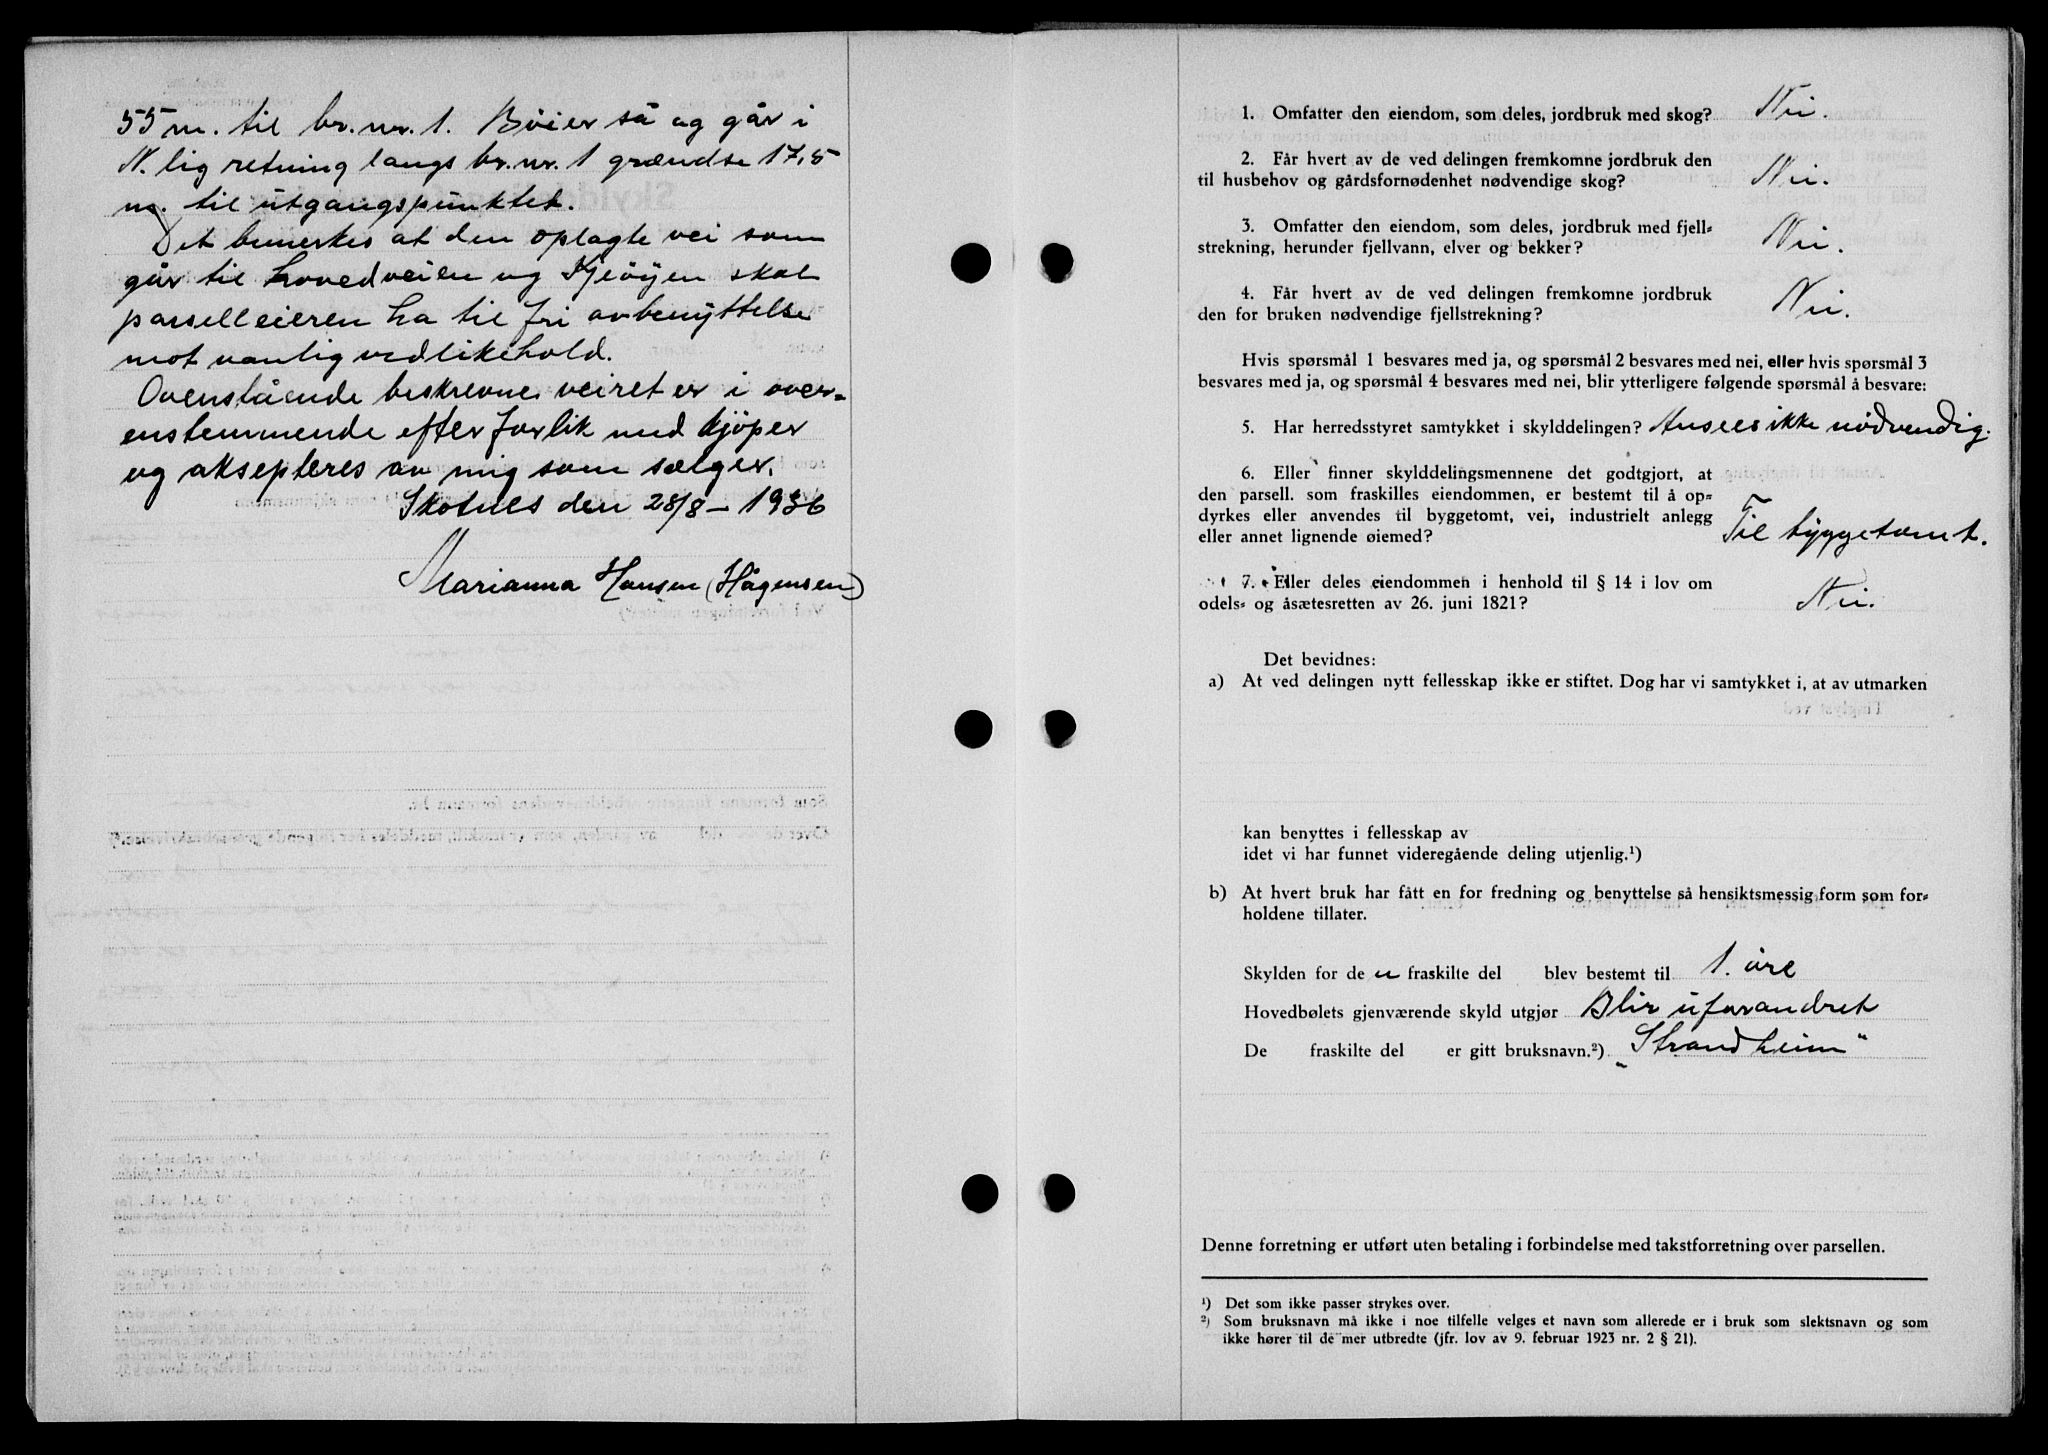 55 m. til br. nr. 1. Böier så og går i
N. lig retning langs br. nr. 1 grændse 17,5
m. til utgangspunktet.
Det bemerkes at den oplagte vei som
går til hovedveien og skal
parselleieren ha til fri avbenyttelse
mot vanlig vedlikehold.
Ovenstående beskrevne veiret er i over-
enstemmende efter forlik med kjöper
og aksepteres av mig som sælger.
Skotnes den 28/8 – 1936
Marianna Hansen (Hågensen)
1. Omfatter den eiendom, som deles, jordbruk med skog? Nei.
2. Får hvert av de ved delingen fremkomne jordbruk den
til husbehov og gårdsfornødenhet nødvendige skog? Nei.
3. Omfatter den eiendom, som deles, jordbruk med fjell-
strekning, herunder fjellvann, elver og bekker? Nei.
4. Får hvert av de ved delingen fremkomne jordbruk
den for bruken nødvendige fjellstrekning? Nei.
Hvis spørsmål 1 besvares med ja, og spørsmål 2 besvares med nei, eller hvis spørsmål 3
besvares med ja, og spørsmål 4 besvares med nei, blir ytterligere følgende spørsmål å besvare:
5. Har herredsstyret samtykket i skylddelingen? Ansees ikke nödvendig.
6. Eller finner skylddelingsmennene det godtgjort, at
den parsell. som fraskilles eiendommen, er bestemt til å op-
dyrkes eller anvendes til byggetomt, vei, industrielt anlegg
eller annet lignende øiemed? Til byggetomt.
7. Eller deles eiendommen i henhold til § 14 i lov om
odels- og åsætesretten av 26. juni 1821? Nei.
Det bevidnes:
a) At ved delingen nytt fellesskap ikke er stiftet. Dog har vi samtykket i, at av utmarken
kan benyttes i fellesskap av
idet vi har funnet videregående deling utjenlig.¹)
b) At hvert bruk har fått en for fredning og benyttelse så hensiktsmessig form som for-
holdene tillater.
Skylden for de n fraskilte del blev bestemt til 1. öre
Hovedbølets gjenværende skyld utgjør Blir uforandret
De fraskilte del er gitt bruksnavn.²) „Strandheim"
Denne forretning er utført uten betaling i forbindelse med takstforretning over parsellen.
¹) Det som ikke passer strykes over.
²) Som bruksnavn må ikke i noe tilfelle velges et navn som allerede er i bruk som slektsnavn og som
ikke hører til de mer utbredte (jfr. lov av 9. februar 1923 nr. 2 § 21).